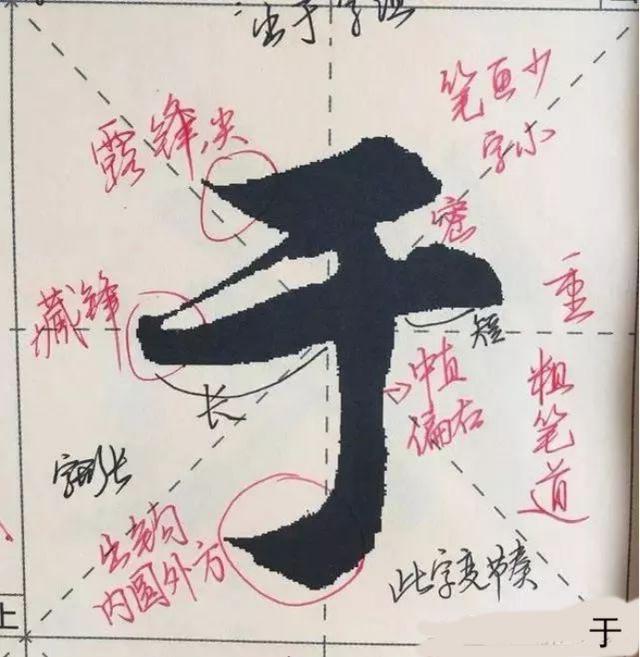 笔画少
字小
露锋尖
于
密
藏锋
重
短
长
中直
偏右
粗笔道
字形长
出钩
内圆外方
此字变节奏
上
于